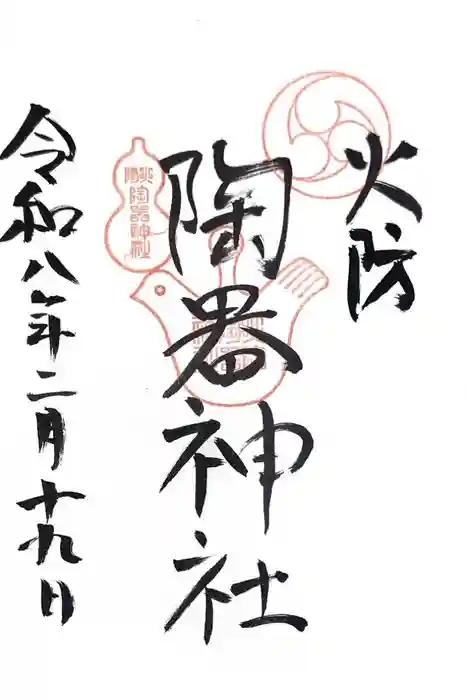 火防
陶器神社
令和八年二月十九日
火防陶器神社